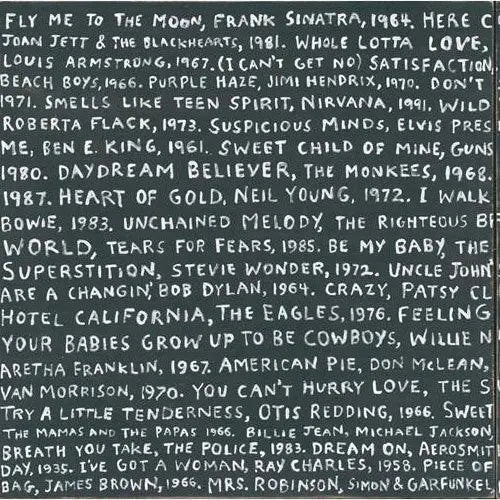 FLY ME TO THE MOON, FRANK SINATRA, 1964. HERE C
JOAN JETT & THE BLACKHEARTS, 1981. WHOLE LOTTA LOVE,
LOUIS ARMSTRONG, 1967. (I CAN'T GET NO) SATISFACTION
BEACH BOYS, 1966. PURPLE HAZE, JIMI HENDRIX, 1970. DON'T
1971. SMELLS LIKE TEEN SPIRIT, NIRVANA, 1991. WILD
ROBERTA FLACK, 1973. SUSPICIOUS MINDS, ELVIS PRES
ME, BEN E. KING, 1961. SWEET CHILD OF MINE, GUNS
1980. DAYDREAM BELIEVER, THE MONKEES, 1968.
1987. HEART OF GOLD, NEIL YOUNG, 1972. I WALK
BOWIE, 1983. UNCHAINED MELODY, THE RIGHTEOUS BR
WORLD, TEARS FOR FEARS, 1985. BE MY BABY, THE
SUPERSTITION, STEVIE WONDER, 1972. UNCLE JOHN'
ARE A CHANGIN', BOB DYLAN, 1964. CRAZY, PATSY CL
HOTEL CALIFORNIA, THE EAGLES, 1976. FEELING
YOUR BABIES GROW UP TO BE COWBOYS, WILLIE N
ARETHA FRANKLIN, 1967. AMERICAN PIE, DON MCLEAN,
VAN MORRISON, 1970. YOU CAN'T HURRY LOVE, THE S
TRY A LITTLE TENDERNESS, OTIS REDDING, 1966. SWEET
THE MAMAS AND THE PAPAS 1966. BILLIE JEAN, MICHAEL JACKSON
BREATH YOU TAKE, THE POLICE, 1983. DREAM ON, AEROSMIT
DAY, 1935. I'VE GOT A WOMAN, RAY CHARLES, 1958. PIECE OF
BAG, JAMES BROWN, 1966. MRS. ROBINSON, SIMON & GARFUNKEL